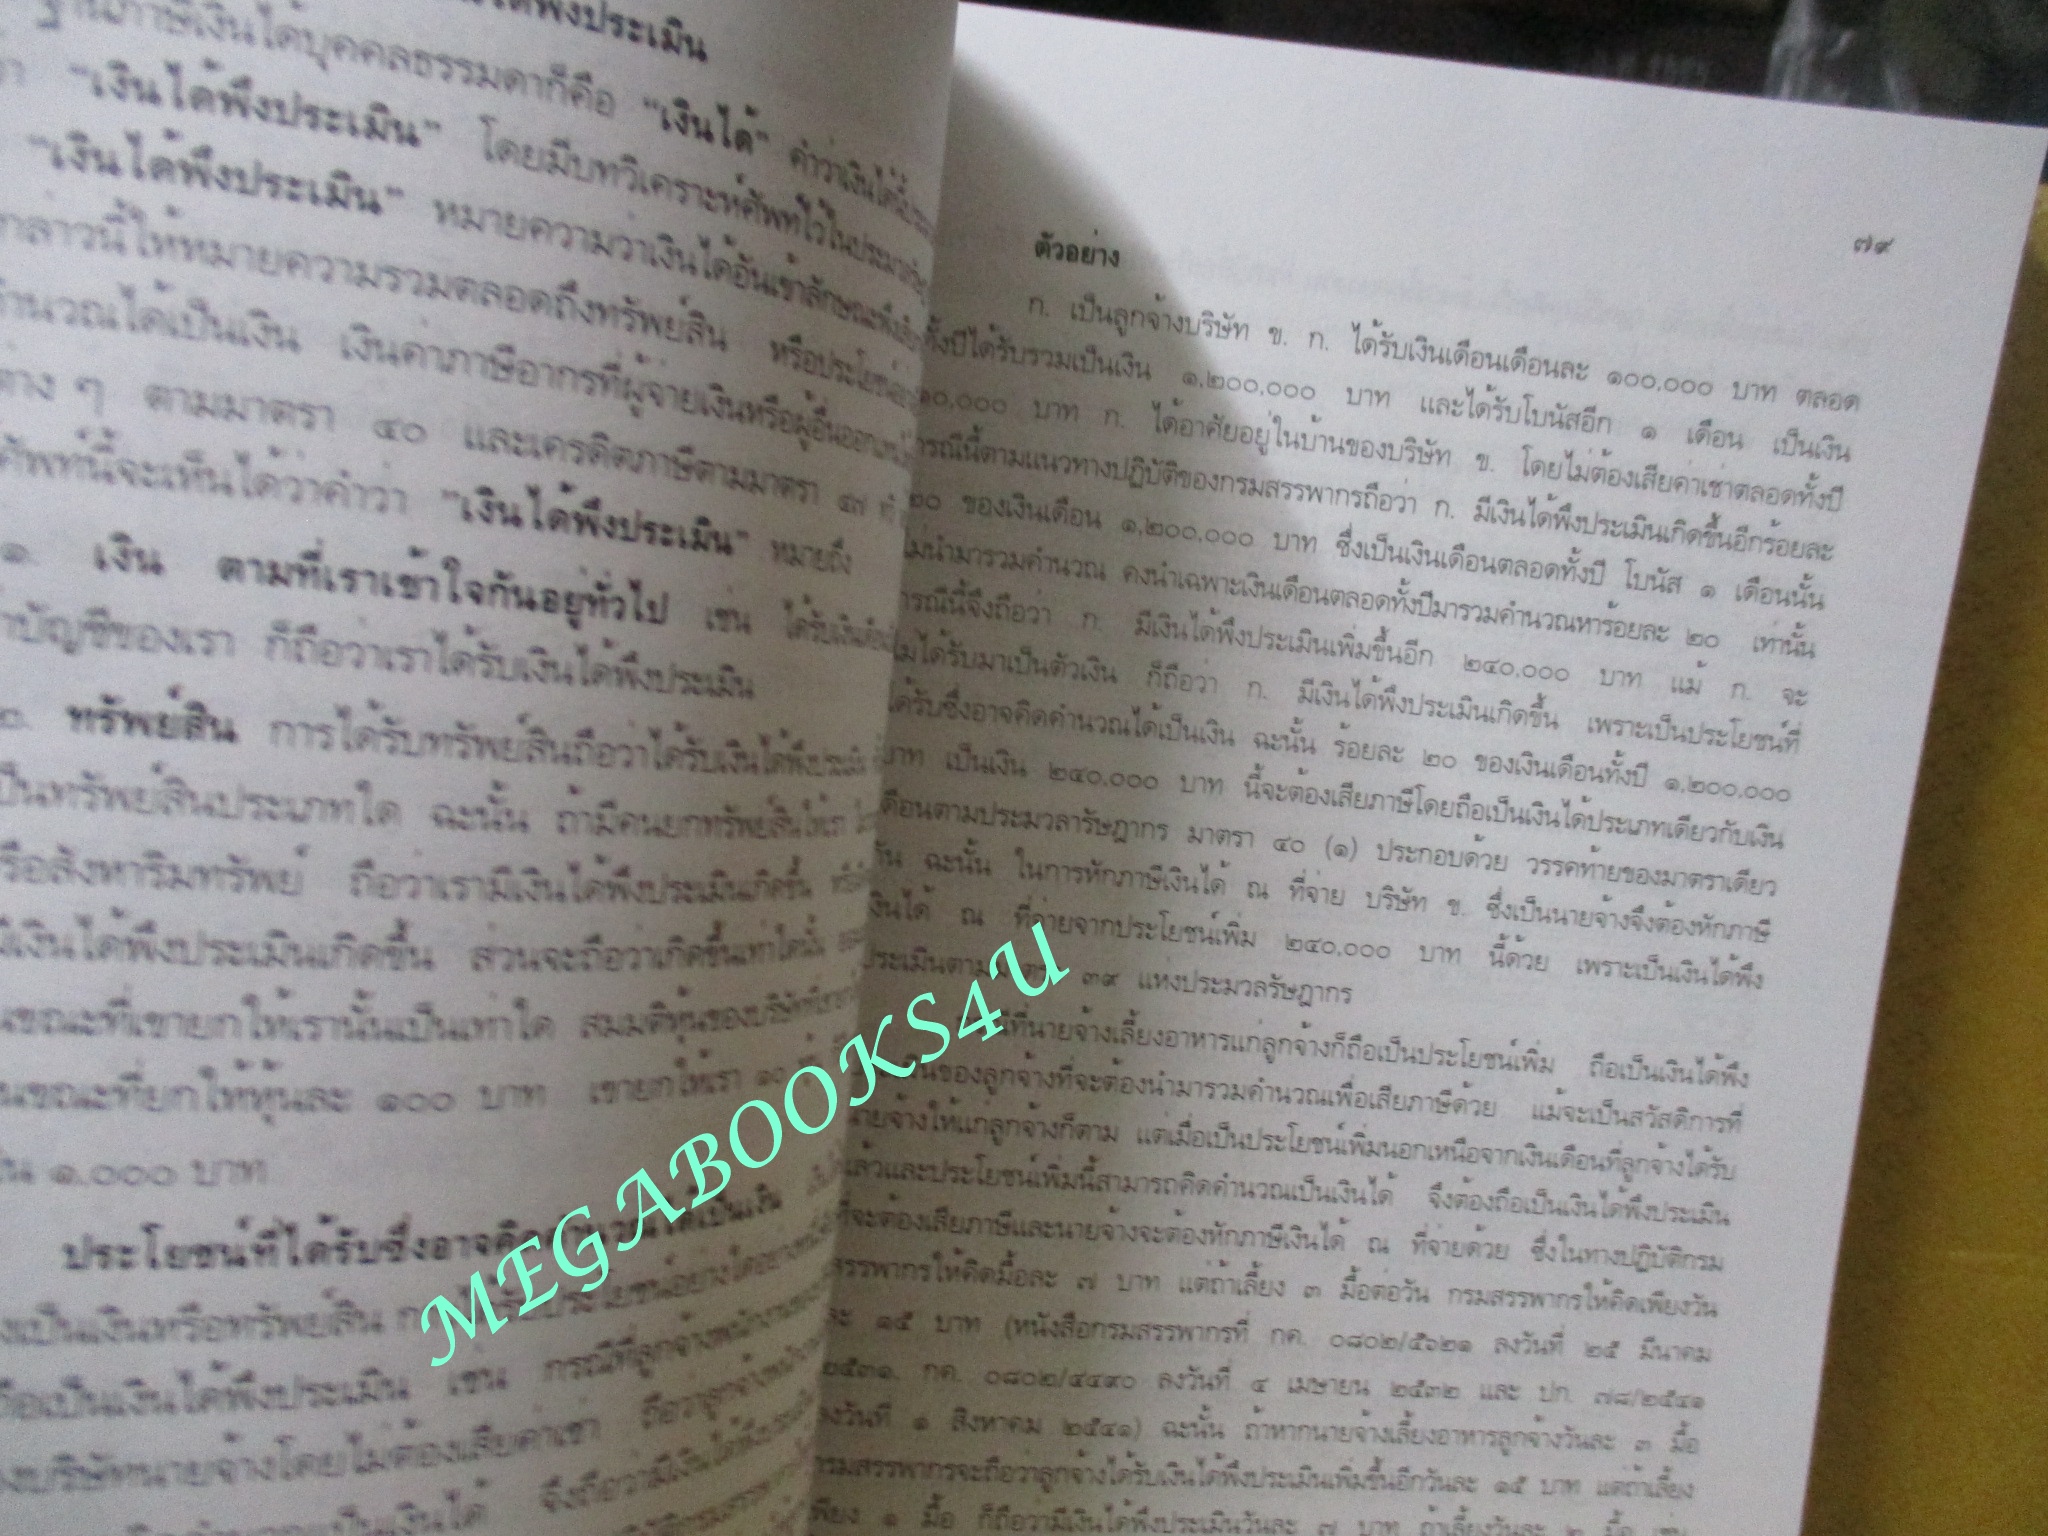 ได้พึงประเมิน
ฐานภาษีเงินได้บุคคลธรรมดาก็คือ "เงินได้" คำว่าเงินได้นี้
"เงินได้พึงประเมิน" โดยมีบทวิเคราะห์ศัพท์ไว้ในประมวล
"เงินได้พึงประเมิน" หมายความว่าเงินได้อันเข้าลักษณะพึง
กล่าวนี้ให้หมายความรวมตลอดถึงทรัพย์สิน หรือประโยชน์
คำนวณได้เป็นเงิน เงินค่าภาษีอากรที่ผู้จ่ายเงินหรือผู้อื่นออกแทน
ต่าง ๆ ตามมาตรา ๔๐ และเครดิตภาษีตามมาตรา ๔๗
ศัพท์นี้จะเห็นได้ว่าคำว่า "เงินได้พึงประเมิน" หมายถึง
๑. เงิน ตามที่เราเข้าใจกันอยู่ทั่วไป เช่น ได้รับเงิน
บัญชีของเรา ก็ถือว่าเราได้รับเงินได้พึงประเมิน
๒. ทรัพย์สิน การได้รับทรัพย์สินถือว่าได้รับเงินได้พึงประเมิน
เป็นทรัพย์สินประเภทใด ฉะนั้น ถ้ามีคนยกทรัพย์สินให้เรา
หรือสังหาริมทรัพย์ ถือว่าเรามีเงินได้พึงประเมินเกิดขึ้น
มีเงินได้พึงประเมินเกิดขึ้น ส่วนจะถือว่าเกิดขึ้นเท่าใดนั้น
ขณะที่เขายกให้เรานั้นเป็นเท่าใด สมมติหุ้นของบริษัท
ในขณะที่ยกให้หุ้นละ ๑๐๐ บาท เขายกให้เรา ๑๐
๑,๐๐๐ บาท
ประโยชน์ที่ได้รับซึ่งอาจคิดคำนวณได้เป็นเงิน
เป็นเงินหรือทรัพย์สิน ประโยชน์อย่างใดอย่างหนึ่ง
ถือเป็นเงินได้พึงประเมิน เช่น กรณีที่ลูกจ้างพนักงาน
ของบริษัทนายจ้างโดยไม่ต้องเสียค่าเช่า ถือว่าลูกจ้างพนักงาน
เป็นเงินได้ จึงถือว่ามีเงินได้พึงประเมิน
๗๙
ตัวอย่าง
ก. เป็นลูกจ้างบริษัท ข. ก. ได้รับเงินเดือนเดือนละ ๑๐๐,๐๐๐ บาท ตลอด
ทั้งปีได้รับรวมเป็นเงิน ๑,๒๐๐,๐๐๐ บาท และได้รับโบนัสอีก ๑ เดือน เป็นเงิน
๑๐๐,๐๐๐ บาท ก. ได้อาศัยอยู่ในบ้านของบริษัท ข. โดยไม่ต้องเสียค่าเช่าตลอดทั้งปี
กรณีนี้ตามแนวทางปฏิบัติของกรมสรรพากรถือว่า ก. มีเงินได้พึงประเมินเกิดขึ้นอีกร้อยละ
๒๐ ของเงินเดือน ๑,๒๐๐,๐๐๐ บาท ซึ่งเป็นเงินเดือนตลอดทั้งปี โบนัส ๑ เดือนนั้น
ไม่นำมารวมคำนวณ คงนำเฉพาะเงินเดือนตลอดทั้งปีมารวมคำนวณหาร้อยละ ๒๐ เท่านั้น
กรณีนี้จึงถือว่า ก. มีเงินได้พึงประเมินเพิ่มขึ้นอีก ๒๔๐,๐๐๐ บาท แม้ ก. จะ
ไม่ได้รับมาเป็นตัวเงิน ก็ถือว่า ก. มีเงินได้พึงประเมินเกิดขึ้น เพราะเป็นประโยชน์ที่
ได้รับซึ่งอาจคิดคำนวณได้เป็นเงิน ฉะนั้น ร้อยละ ๒๐ ของเงินเดือนทั้งปี ๑,๒๐๐,๐๐๐
บาท เป็นเงิน ๒๔๐,๐๐๐ บาท นี้จะต้องเสียภาษีโดยถือเป็นเงินได้ประเภทเดียวกับเงิน
เดือนตามประมวลารัษฎากร มาตรา ๔๐ (๑) ประกอบด้วย วรรคท้ายของมาตราเดียว
กัน ฉะนั้น ในการหักภาษีเงินได้ ณ ที่จ่าย บริษัท ข. ซึ่งเป็นนายจ้างจึงต้องหักภาษี
เงินได้ ณ ที่จ่ายจากประโยชน์เพิ่ม ๒๔๐,๐๐๐ บาท นี้ด้วย เพราะเป็นเงินได้พึง
ประเมินตามมาตรา ๓๙ แห่งประมวลรัษฎากร
กรณีที่นายจ้างเลี้ยงอาหารแก่ลูกจ้างก็ถือเป็นประโยชน์เพิ่ม ถือเป็นเงินได้พึง
ประเมินของลูกจ้างที่จะต้องนำมารวมคำนวณเพื่อเสียภาษีด้วย แม้จะเป็นสวัสดิการที่
นายจ้างให้แก่ลูกจ้างก็ตาม แต่เมื่อเป็นประโยชน์เพิ่มนอกเหนือจากเงินเดือนที่ลูกจ้างได้รับ
แล้วและประโยชน์เพิ่มนี้สามารถคิดคำนวณเป็นเงินได้ จึงต้องถือเป็นเงินได้พึงประเมิน
ที่จะต้องเสียภาษีและนายจ้างจะต้องหักภาษีเงินได้ ณ ที่จ่ายด้วย ซึ่งในทางปฏิบัติกรม
สรรพากรให้คิดมื้อละ ๗ บาท แต่ถ้าเลี้ยง ๓ มื้อต่อวัน กรมสรรพากรให้คิดเพียงวัน
ละ ๑๕ บาท (หนังสือกรมสรรพากรที่ กค. ๐๘๐๒/๕๖๒๑ ลงวันที่ ๒๕ มีนาคม
๒๕๓๑, กค. ๐๘๐๒/๔๔๙๐ ลงวันที่ ๔ เมษายน ๒๕๓๒ และ ปก. ๗๘/๒๕๔๑
ลงวันที่ ๑ สิงหาคม ๒๕๔๑) ฉะนั้น ถ้าหากนายจ้างเลี้ยงอาหารลูกจ้างวันละ ๓ มื้อ
กรมสรรพากรจะถือว่าลูกจ้างได้รับเงินได้พึงประเมินเพิ่มขึ้นอีกวันละ ๑๕ บาท แต่ถ้าเลี้ยง
เพียง ๑ มื้อ ก็ถือว่ามีเงินได้พึงประเมินวันละ ๗ บาท ถ้าเลี้ยงวันละ ๒ มื้อ เช่น
MEGABOOKS4U